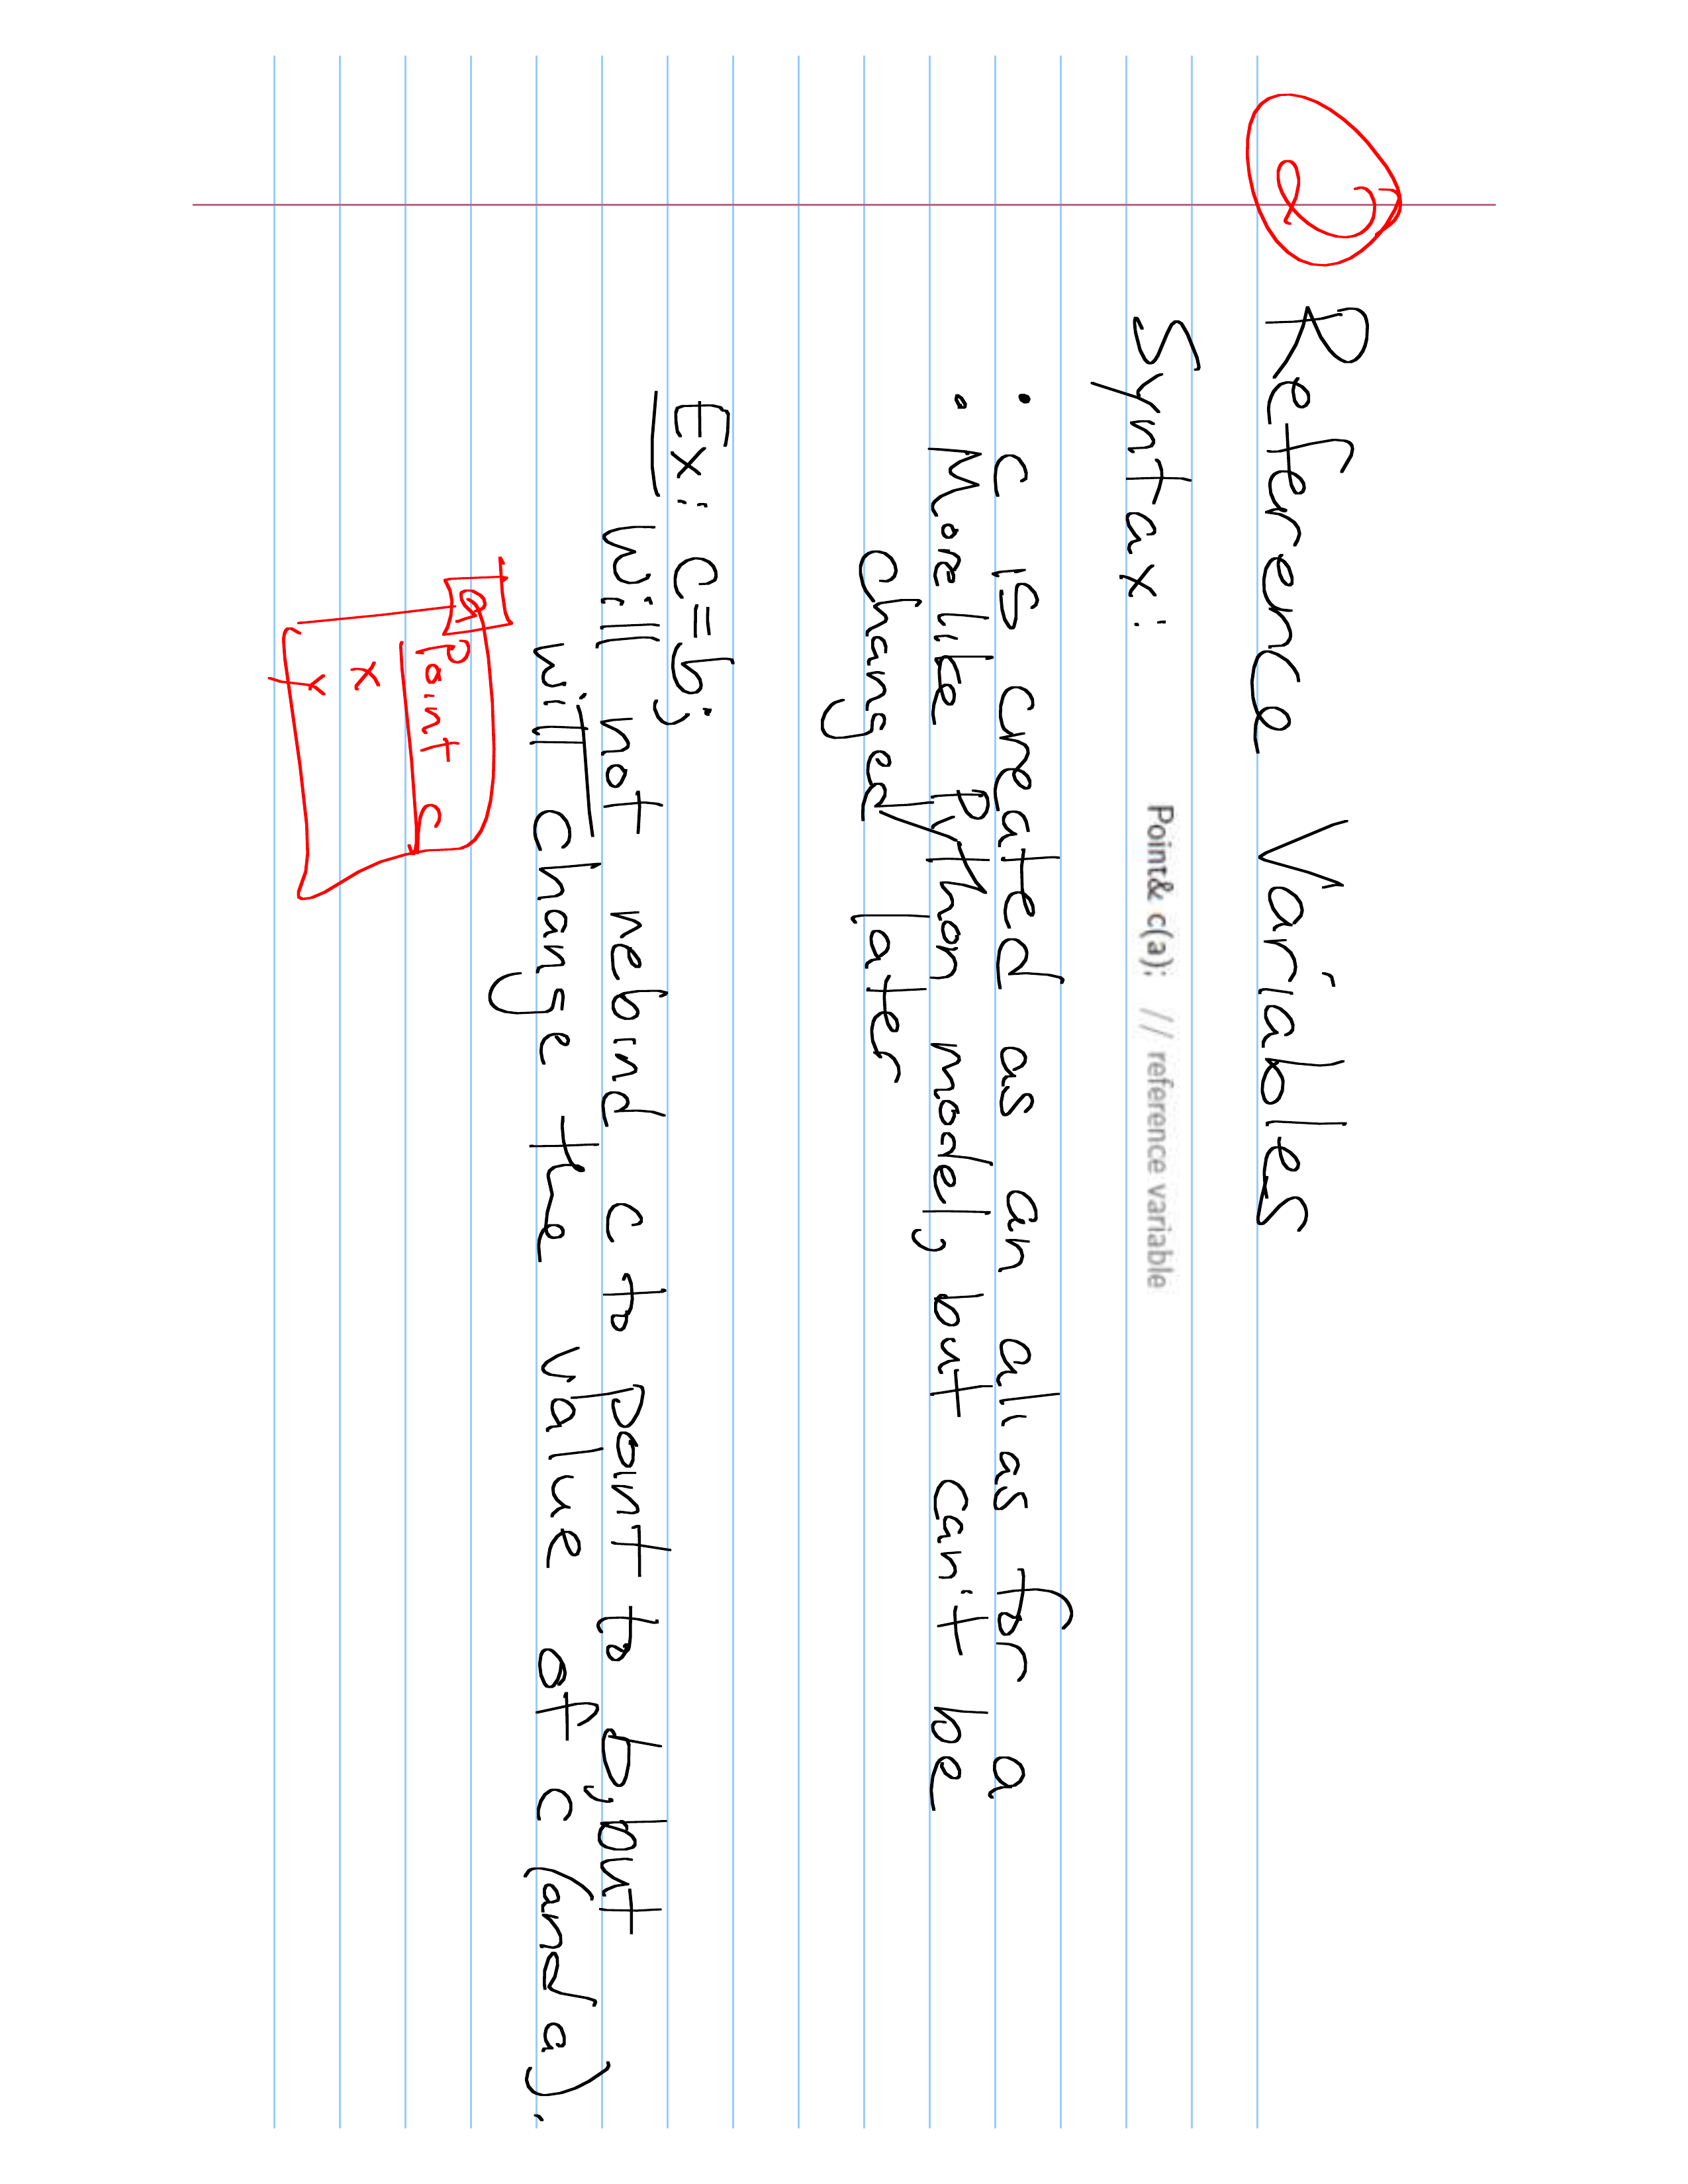 2
Reference Variables
Syntax: Point& c(a); // reference variable
• c is created as an alias for a
• More like Python model, but can't be
changed later
Ex: c=b;
Will not rebind c to point to b, but
will change the value of c (and a).
a
Point c
x
y